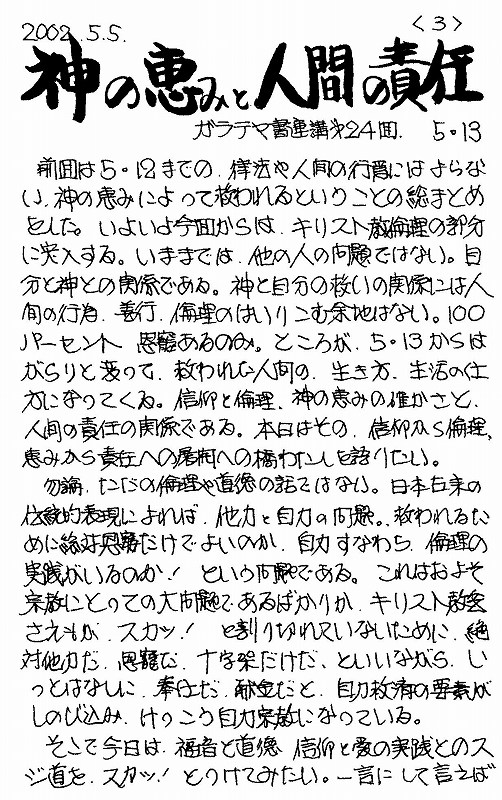 2002.5.5. <3>
神の恵みと人間の責任
ガラテヤ書連講第24回. 5・13
前回は5・12までの、律法や人間の行為にはよらな
い、神の恵みによって救われるということの総まとめ
をした。いよいよ今回からは、キリスト教倫理の部分
に突入する。いままでは、他の人の問題ではない。自
分と神との関係である。神と自分の救いの関係には人
間の行為、善行、倫理のはいりこむ余地はない。100
パーセント 恩寵あるのみ。ところが、5・13からは
がらりと変って、救われた人間の、生き方、生活の仕
方になってくる。信仰と倫理、神の恵みの確かさと、
人間の責任の関係である。本日はその、信仰から倫理、
恵みから責任への展開への橋わたしを語りたい。
勿論、ただの倫理や道徳の話ではない。日本古来の
伝統的表現によれば、他力と自力の問題。救われるた
めに恩寵だけでよいのか、自力すなわち、倫理の
実践がいるのか! という問題である。これはおよそ
宗教にとっての大問題であるばかりか、キリスト教会
さえもが、スカッ! と割り切れていないために、絶
対他力だ、恩寵だ、十字架だけだ、といいながら、い
つとはなしに、奉仕だ、献金だと、自力救済の要素が
しのび込み、けっこう自力宗教になっている。
そこで今日は、福音と道徳 信仰と愛の実践とのス
ジ道を、スカッ! とつけてみたい。一言にして言えば